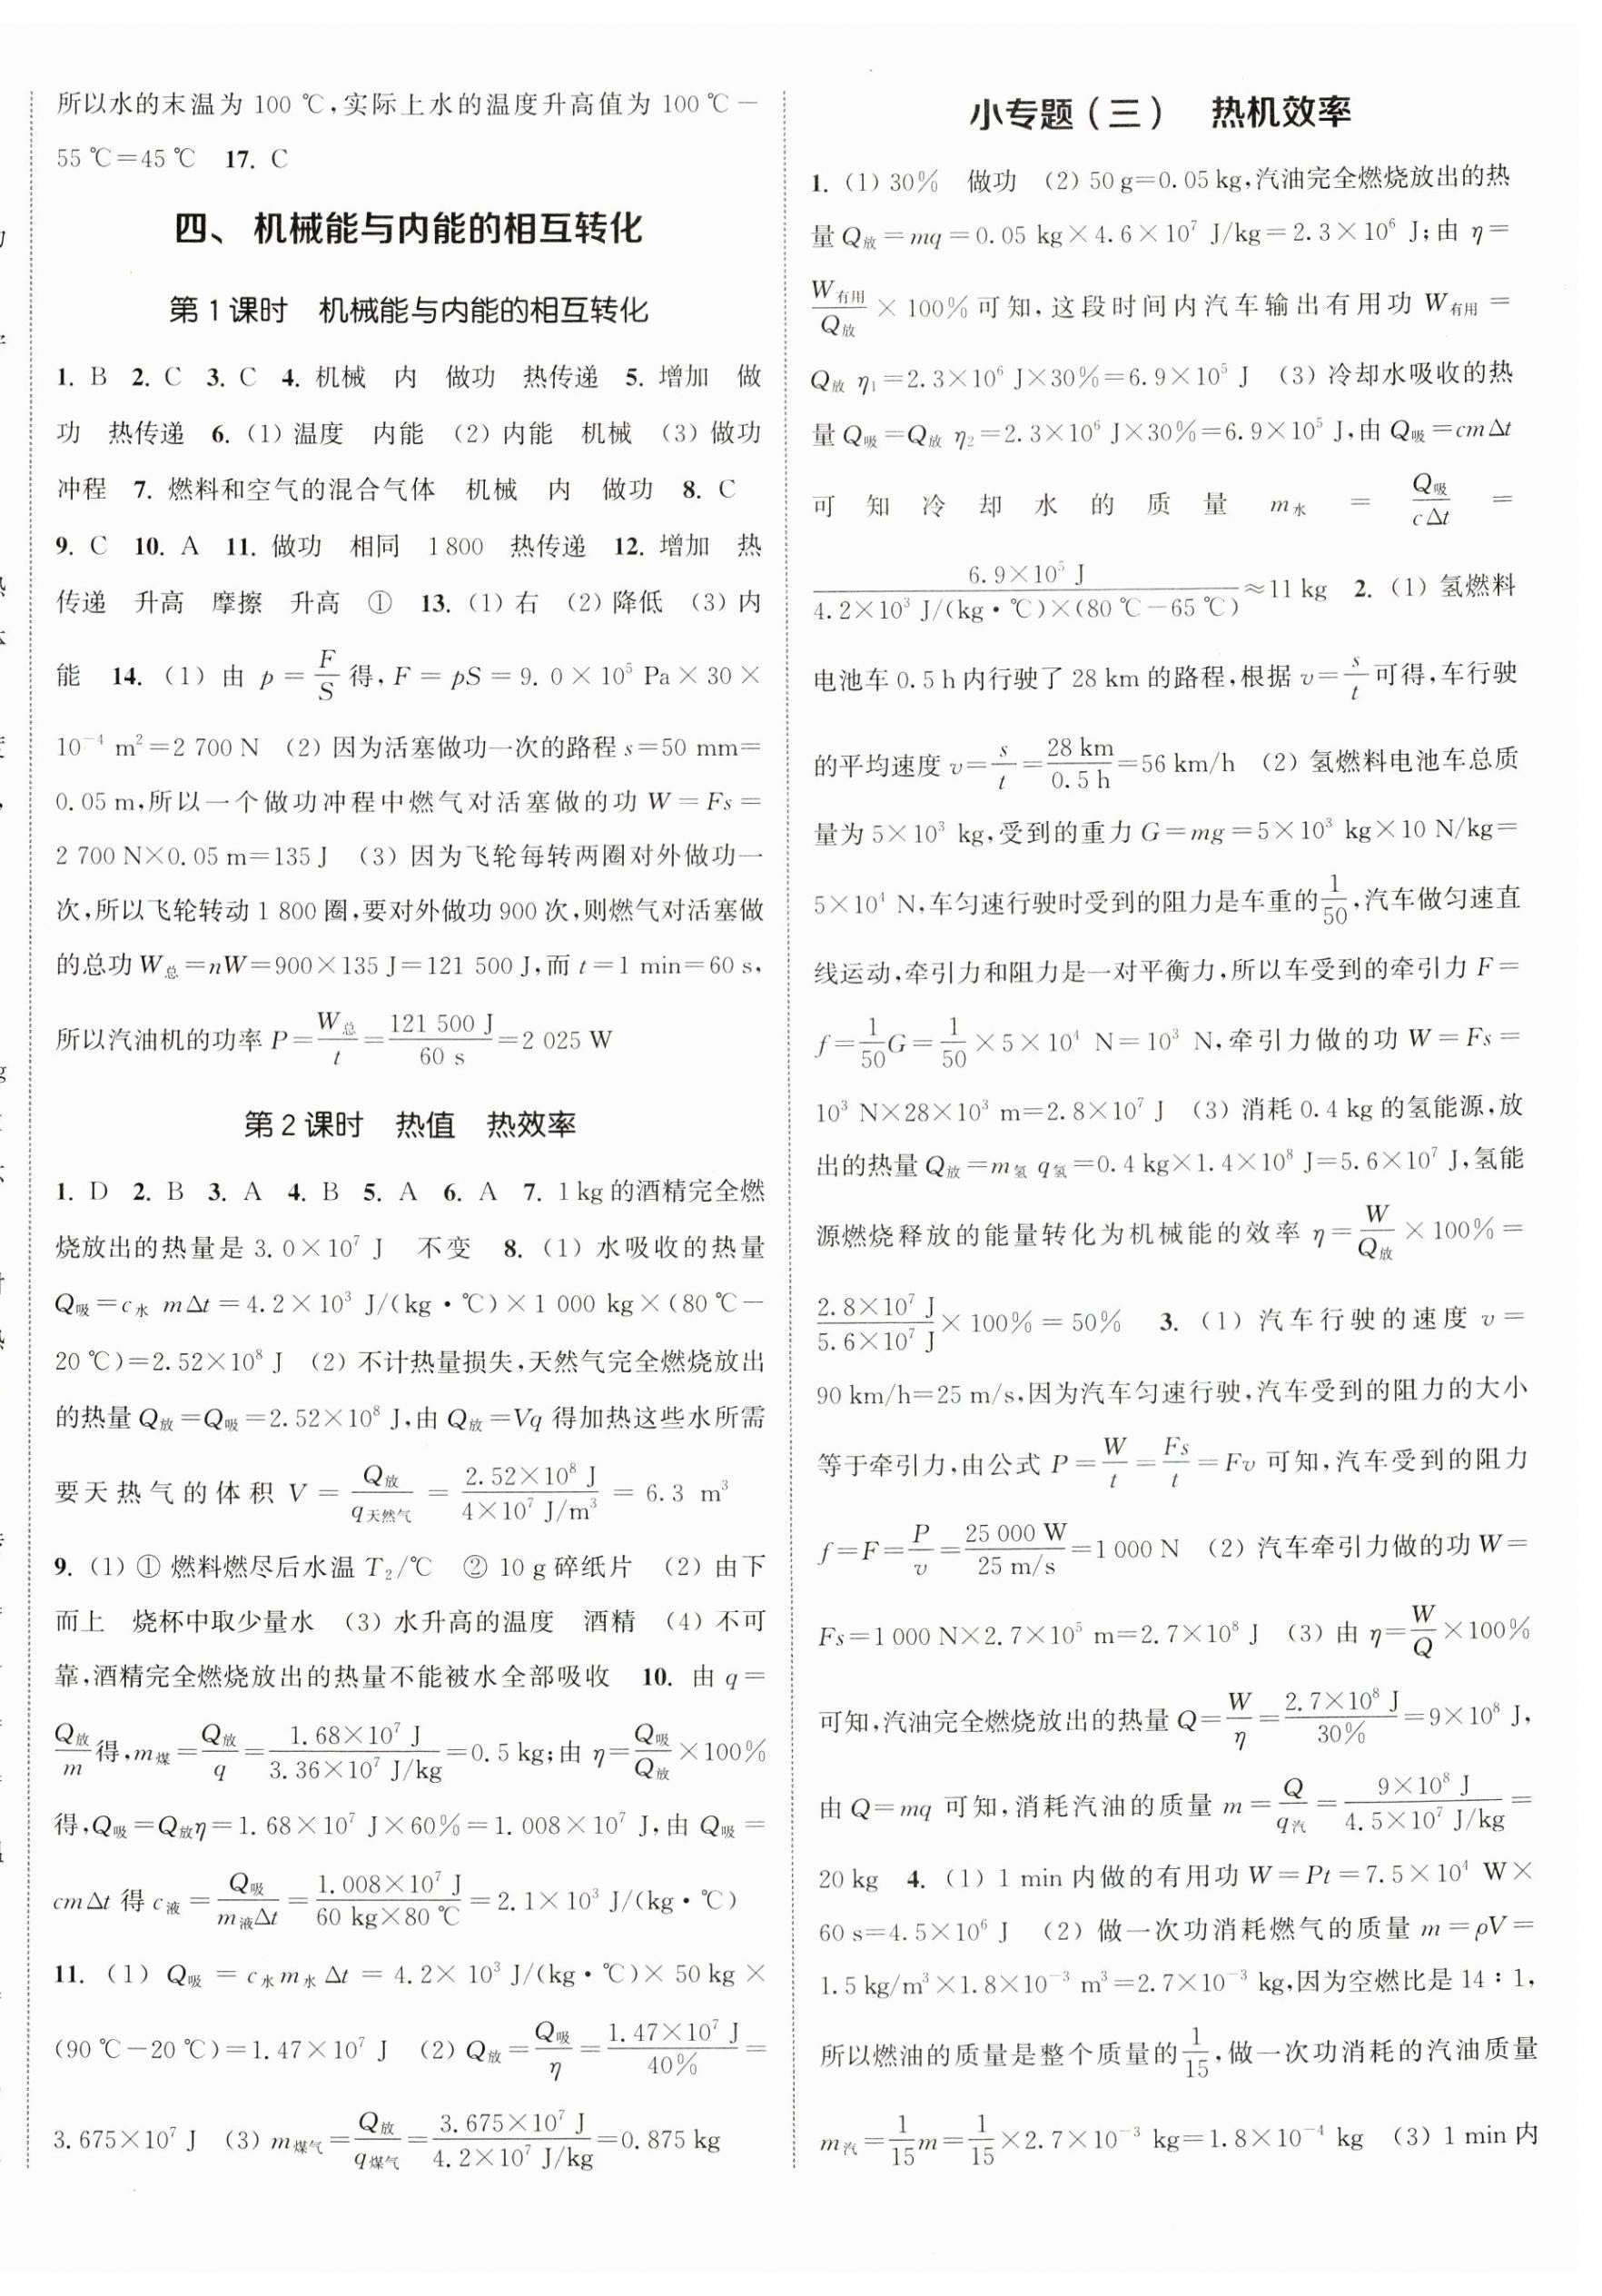 所以水的末温为 100 ℃,实际上水的温度升高值为 100 ℃-
55 ℃=45 ℃ 17. C
四、 机械能与内能的相互转化
第1课时 机械能与内能的相互转化
1. B 2. C 3. C 4. 机械 内 做功 热传递 5. 增加 做
功 热传递 6. (1) 温度 内能 (2) 内能 机械 (3) 做功
冲程 7. 燃料和空气的混合气体 机械 内 做功 8. C
9. C 10. A 11. 做功 相同 1 800 热传递 12. 增加 热
传递 升高 摩擦 升高 ① 13. (1) 右 (2) 降低 (3) 内
能 14. (1) 由 p = F/S 得, F = pS = 9.0×10⁵ Pa×30×
10⁻⁴ m²=2 700 N (2) 因为活塞做功一次的路程 s=50 mm=
0.05 m,所以一个做功冲程中燃气对活塞做的功 W=Fs=
2 700 N×0.05 m=135 J (3) 因为飞轮每转两圈对外做功一
次,所以飞轮转动 1 800 圈,要对外做功 900 次,则燃气对活塞做
的总功 W总=nW=900×135 J=121 500 J,而 t=1 min=60 s,
所以汽油机的功率 P=W总/t=121 500 J/60 s=2 025 W
第2课时 热值 热效率
1. D 2. B 3. A 4. B 5. A 6. A 7. 1 kg 的酒精完全燃
烧放出的热量是 3.0×10⁷ J 不变 8. (1) 水吸收的热量
Q吸=c水 mΔt=4.2×10³ J/(kg·℃)×1 000 kg×(80 ℃-
20 ℃)=2.52×10⁸ J (2) 不计热量损失,天然气完全燃烧放出
的热量 Q放=Q吸=2.52×10⁸ J,由 Q放=Vq 得加热这些水所需
要天热气的体积 V=Q放/q天然气=2.52×10⁸ J/4×10⁷ J/m³=6.3 m³
9. (1) ① 燃料燃尽后水温 T₂/℃ ② 10 g 碎纸片 (2) 由下
而上 烧杯中取少量水 (3) 水升高的温度 酒精 (4) 不可
靠,酒精完全燃烧放出的热量不能被水全部吸收 10. 由 q=
Q放/m 得,m煤=Q放/q=1.68×10⁷ J/3.36×10⁷ J/kg=0.5 kg;由 η=Q吸/Q放×100%
得,Q吸=Q放η=1.68×10⁷ J×60%=1.008×10⁷ J,由 Q吸=
cmΔt 得 c液=Q吸/m液Δt=1.008×10⁷ J/60 kg×80 ℃=2.1×10³ J/(kg·℃)
11. (1) Q吸=c水m水Δt=4.2×10³ J/(kg·℃)×50 kg×
(90 ℃-20 ℃)=1.47×10⁷ J (2) Q放=Q吸/η=1.47×10⁷ J/40%=
3.675×10⁷ J (3) m煤气=Q放/q煤气=3.675×10⁷ J/4.2×10⁷ J/kg=0.875 kg
小专题(三) 热机效率
1. (1) 30% 做功 (2) 50 g=0.05 kg,汽油完全燃烧放出的热
量 Q放=mq=0.05 kg×4.6×10⁷ J/kg=2.3×10⁶ J;由 η=
W有用/Q放×100%可知,这段时间内汽车输出有用功 W有用=
Q放 η₁=2.3×10⁶ J×30%=6.9×10⁵ J (3) 冷却水吸收的热
量 Q吸=Q放 η₂=2.3×10⁶ J×30%=6.9×10⁵ J,由 Q吸=cmΔt
可知冷却水的质量 m水=Q吸/cΔt=
6.9×10⁵ J/4.2×10³ J/(kg·℃)×(80 ℃-65 ℃)≈11 kg 2. (1) 氢燃料
电池车 0.5 h 内行驶了 28 km 的路程,根据 v=s/t 可得,车行驶
的平均速度 v=s/t=28 km/0.5 h=56 km/h (2) 氢燃料电池车总质
量为 5×10³ kg,受到的重力 G=mg=5×10³ kg×10 N/kg=
5×10⁴ N,车匀速行驶时受到的阻力是车重的1/50,汽车做匀速直
线运动,牵引力和阻力是一对平衡力,所以车受到的牵引力 F=
f=1/50G=1/50×5×10⁴ N=10³ N,牵引力做的功 W=Fs=
10³ N×28×10³ m=2.8×10⁷ J (3) 消耗 0.4 kg 的氢能源,放
出的热量 Q放=m氢 q氢=0.4 kg×1.4×10⁸ J=5.6×10⁷ J,氢能
源燃烧释放的能量转化为机械能的效率 η=W/Q放×100%=
2.8×10⁷ J/5.6×10⁷ J×100%=50% 3. (1) 汽车行驶的速度 v=
90 km/h=25 m/s,因为汽车匀速行驶,汽车受到的阻力的大小
等于牵引力,由公式 P=W/t=Fs/t=Fv 可知,汽车受到的阻力
f=F=P/v=25 000 W/25 m/s=1 000 N (2) 汽车牵引力做的功 W=
Fs=1 000 N×2.7×10⁵ m=2.7×10⁸ J (3) 由 η=W/Q×100%
可知,汽油完全燃烧放出的热量 Q=W/η=2.7×10⁸ J/30%=9×10⁸ J,
由 Q=mq 可知,消耗汽油的质量 m=Q/q汽=9×10⁸ J/4.5×10⁷ J/kg=
20 kg 4. (1) 1 min 内做的有用功 W=Pt=7.5×10⁴ W×
60 s=4.5×10⁶ J (2) 做一次功消耗燃气的质量 m=ρV=
1.5 kg/m³×1.8×10⁻³ m³=2.7×10⁻³ kg,因为空燃比是 14∶1,
所以燃油的质量是整个质量的1/15,做一次功消耗的汽油质量
m汽=1/15m=1/15×2.7×10⁻³ kg=1.8×10⁻⁴ kg (3) 1 min 内